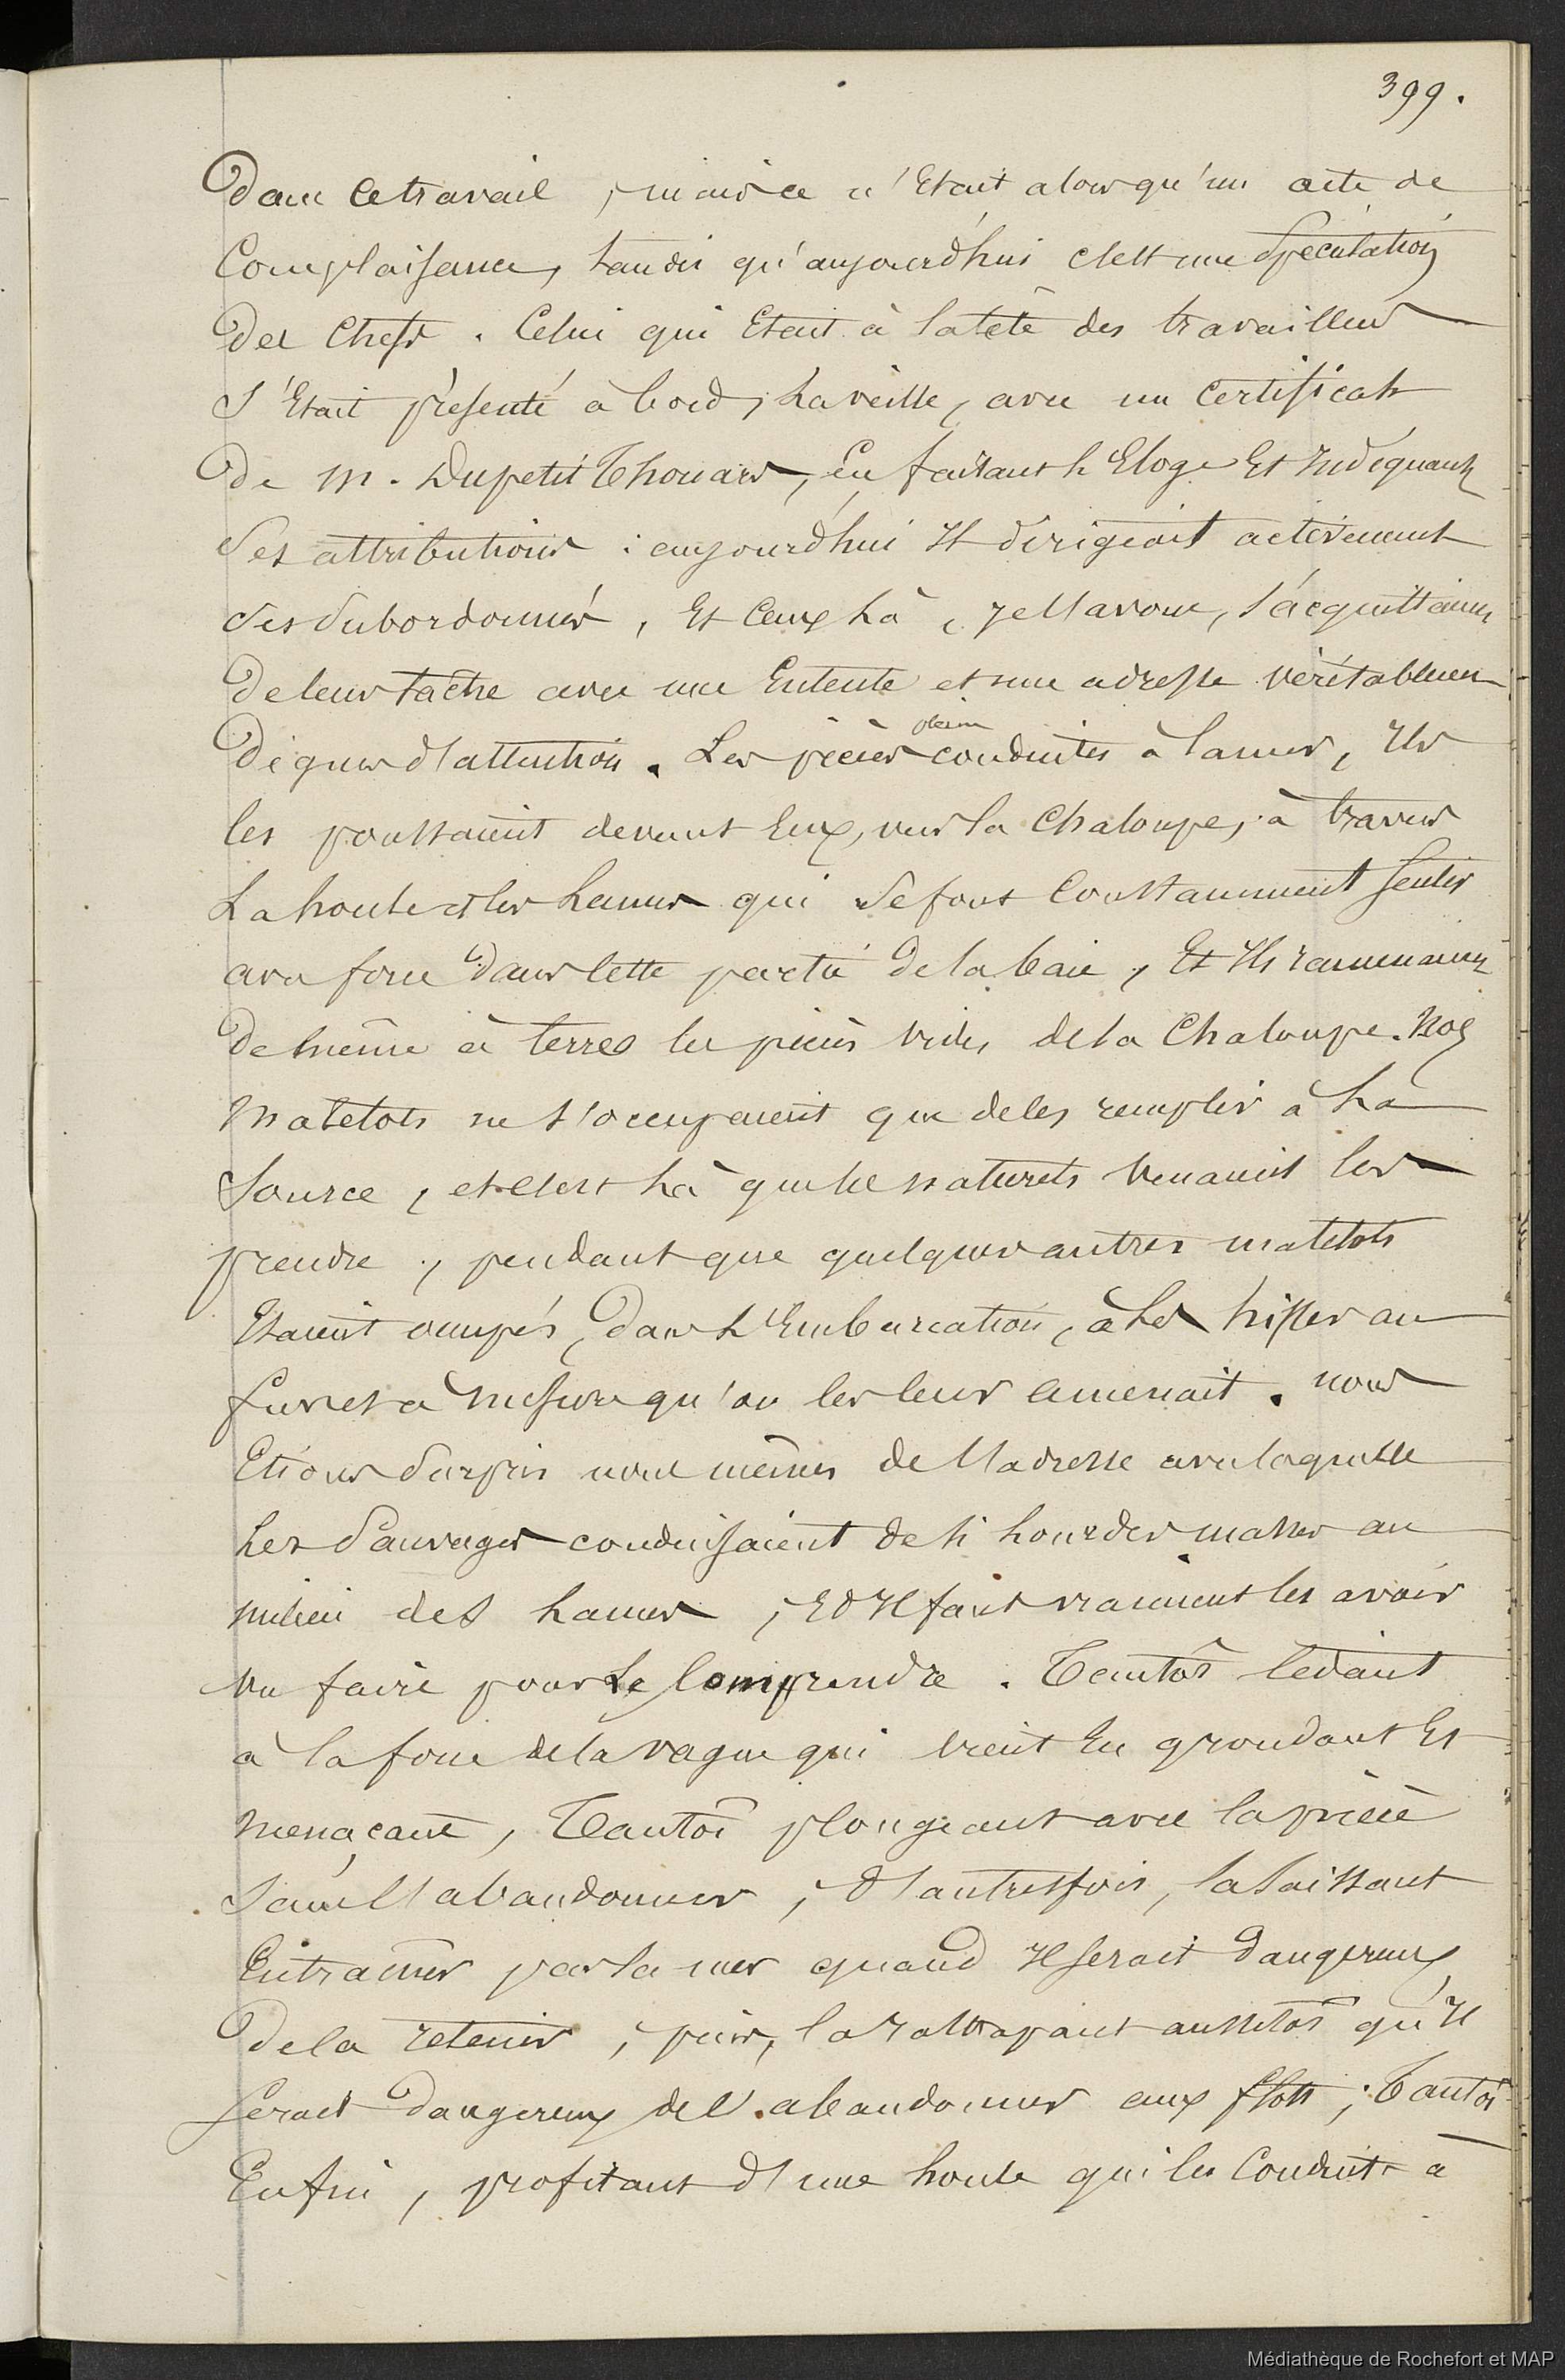 399.
Dans ce travail, mais ce n'Etait alors qu'un acte de
Complaisance, tandis qu'aujourd'hui c'est une Spéculation
Des Chefs. Celui qui Etait à la tête des travailleurs
S'Etait présenté à bord, La veille, avec un Certificat
De M. Dupetit Thouars, En faisant L'Eloge Et Indiquant
Ses attributions : aujourd'hui Il dirigeait activement
Ses Subordonnés, Et Ceux Là, je l'avoue, S'acquittaient
De leur tâche avec une Entente et une adresse véritablement
Dignes d'attention. Les pièces pleines conduites à la mer, Ils
les poussaient devant Eux, vers la Chaloupe, à travers
La houle et les Lames qui Se font Constamment Sentir
avec force Dans Cette partie De la baie, Et Ils ramenaient
De même à terre les pièces vides de la Chaloupe. Nos
Matelots ne S'occupaient que de les remplir à La
Source, et c'est Là que les naturels Venaient les
prendre, pendant que quelques autres matelots
Etaient occupés, Dans L'Embarcation, à Les hisser au
fur et à Mesure qu'on les leur amenait. Nous
Etions Surpris nous mêmes de l'adresse avec laquelle
Les Sauvages conduisaient de Si Lourdes masses au
milieu des Lames, Et Il faut vraiment les avoir
Vu faire pour Le Comprendre. Tantôt Cédant
à la force de la vague qui vient En grondant Et
Menaçant, Tantôt plongeant avec la pièce
Sans l'abandonner, D'autres fois, la laissant
Entraîner par la mer quand Il Serait Dangereux
De la retenir, puis, la rattrapant aussitôt qu'Il
Serait Dangereux de l'abandonner aux flots ; Tantôt
Enfin, profitant d'une houle qui les Conduit à
Médiathèque de Rochefort et MAP